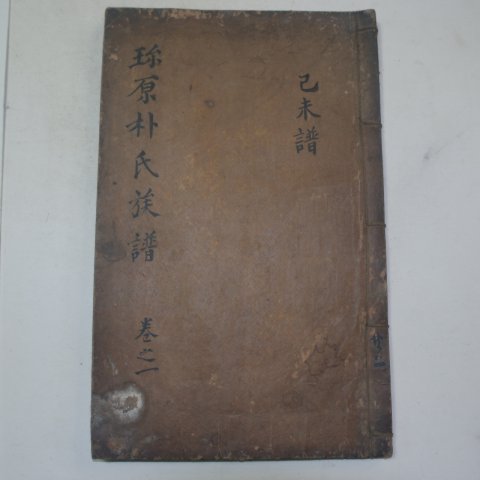 己未譜
珎原朴氏族譜 卷之一